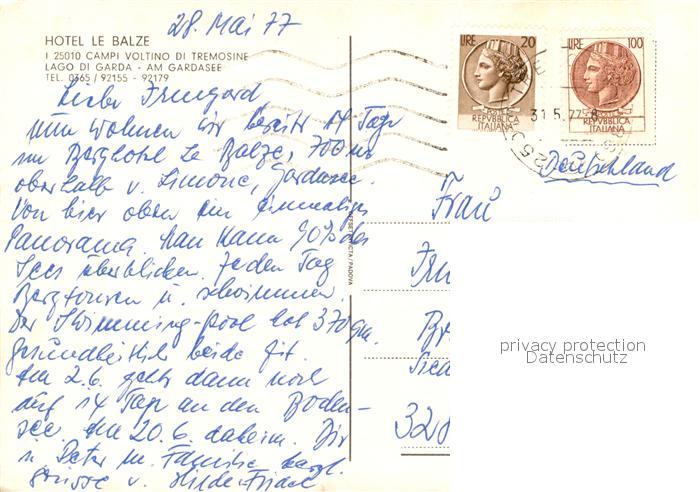 28. Mai 77
HOTEL LE BALZE
I 25010 CAMPI VOLTINO DI TREMOSINE
LAGO DI GARDA - AM GARDASEE
TEL. 0365 / 92155 - 92179
Liebe Irmgard
Nun wohnen wir bereits 14 Tage
im Berghotel Le Balze, 700 m
oberhalb v. Limone, Gardasee.
Von hier oben ein einmaliges
Panorama. Man kann 90% des
Sees überblicken. Jeden Tag
Bergtouren u. schwimmen.
Der Swimming-Pool hat 370 qm.
Gesundheitlich beide fit.
Am 2.6. geht's dann noch
auf 14 Tage an den Boden-
see. Am 20.6. daheim. Dir
u. Peter m. Familie herzl.
Grüsse v. Hilde + Fried
LIRE 20
POSTE
REPVBBLICA
ITALIANA
LIRE 100
POSTE
REPVBBLICA
ITALIANA
31.5.77
Deutschland
Frau
PADOVA
privacy protection
Datenschutz